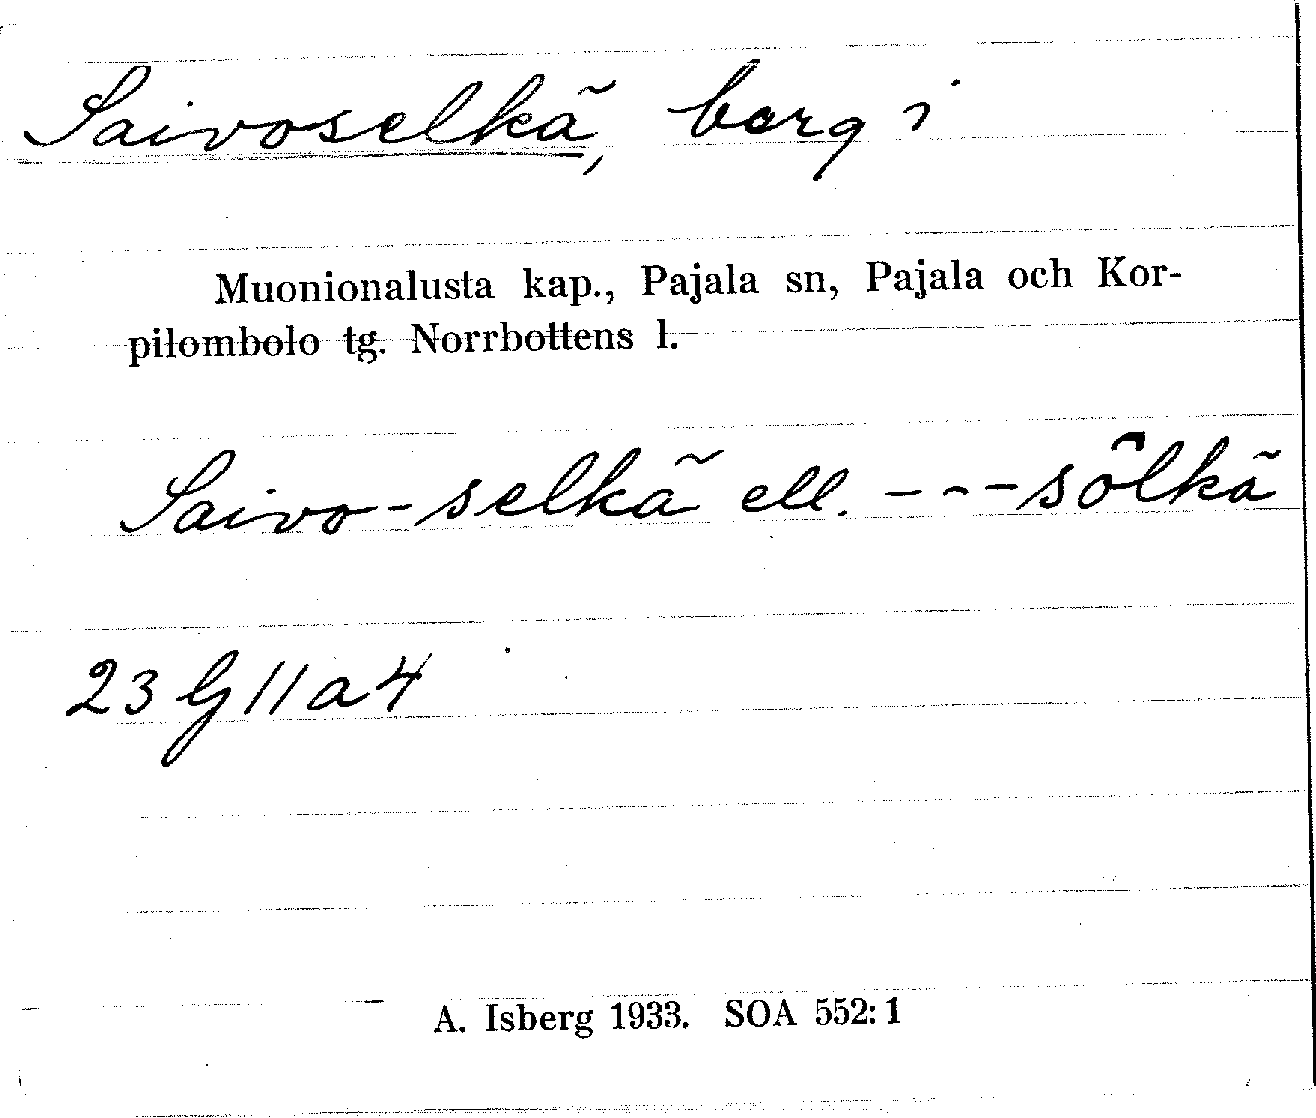 Saivoselkä, berg i
Muonionalusta kap., Pajala sn, Pajala och Kor-
pilombolo tg. Norrbottens l.
Saivo-selkä ell. ---sölkä
23 G 11 a 4
A. Isberg 1933. SOA 552:1